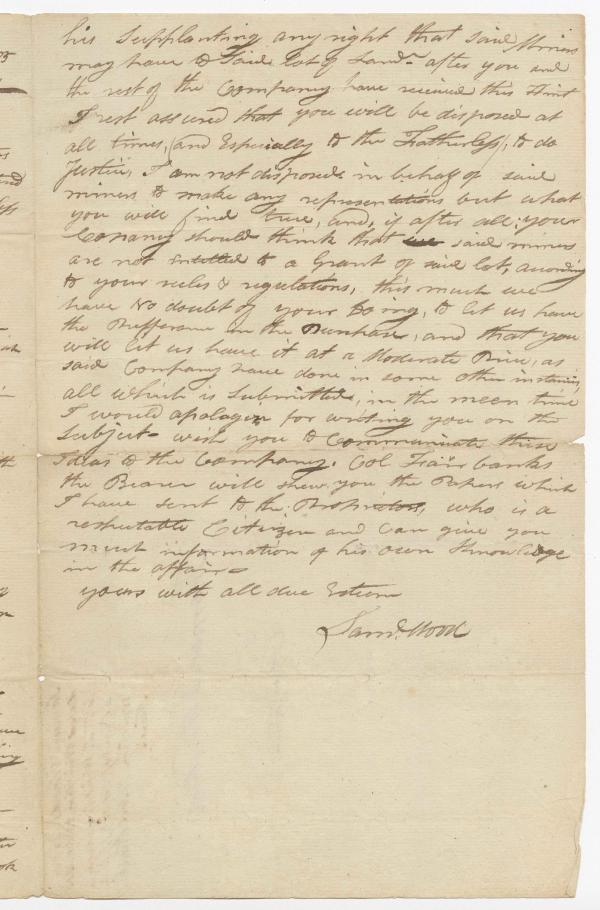 his Supplanting any right that said Minors
may have to Said lot of Land - after you and
the rest of the Company have received this Hint
I rest assured that you will be disposed at
all times, (and Especially to the Fatherless), to do
Justice, I am not disposed in behalf of said
minors to make any representations but what
you will find true, and, if after all, your
Company should think that said minors
are not entitled to a Grant of said lot, according
to your rules & regulations, this much we
have no doubt of your Doing, to let us have
the Preferance in the Purchase, and that you
will let us have it at a Moderate Price, as
said Company have done in some other instances,
all which is Submitted, in the mean time
I would apologize for writing you on the
Subject - wish you to Communicate these
Ideas to the Company. Col Fairbanks
the Bearer will shew you the Papers which
I have sent to the Proprietors, who is a
respectable Citizen and Can give you
much information of his own Knowledge
in the affair -
yours with all due Esteem
Saml. Wood